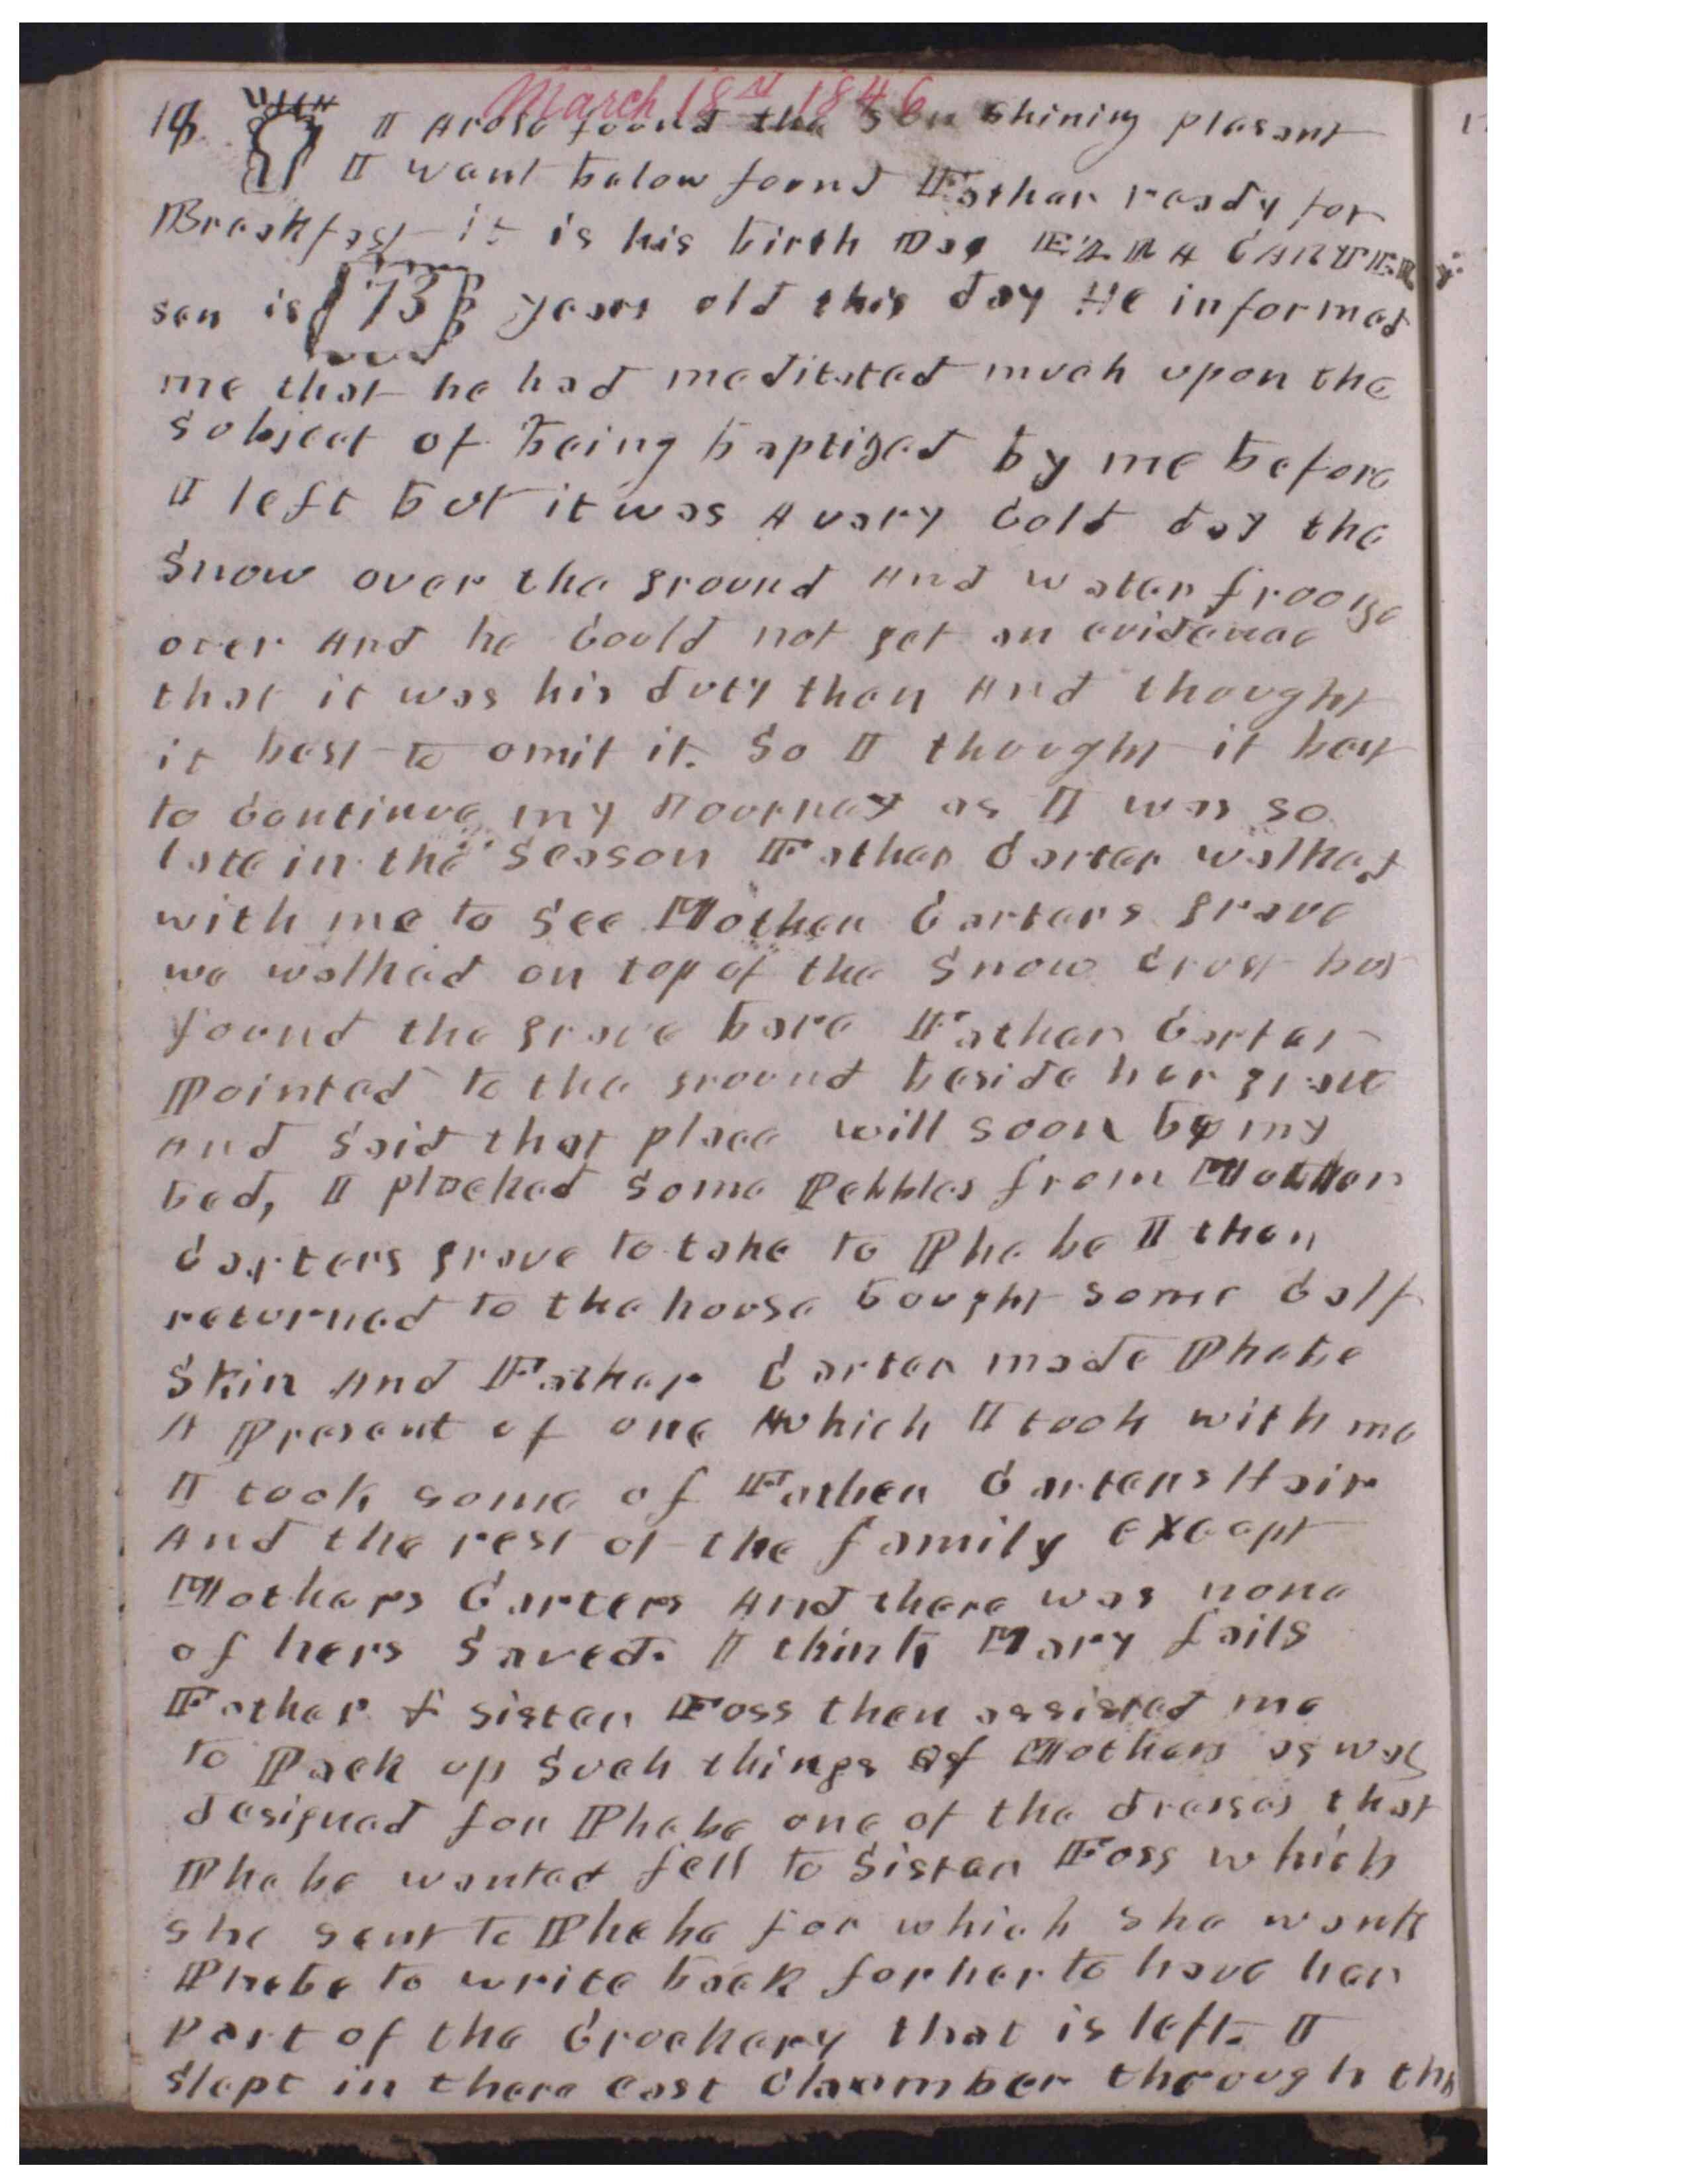 March 18st 1846
18 I Arose found the Sun Shining plesant
I want below found Father ready for
Breakfast it is his birth Day EZRA CARTER
sen is 73 years old this day He informed
me that he had meditated much upon the
subject of being baptized by me before
I left but it was A very Cold day the
Snow over the ground And water frooze
over And he Could not get an evidence
that it was his duty then And thought
it best to omit it. So I thought it best
to Continue my Journey as I was so
late in the Season Father Carter walked
with me to See Mother Carters grave
we walked on top of the Snow Crust but
found the grave bare Father Carter
Pointed to the ground beside her grave
And Said that place will soon be my
bed, I plucked Some Pebbles from Mother
Carters grave to take to Phebe I then
returned to the house bought some Calf
Skin And Father Carter made Phebe
A Present of one which I took with me
I took some of Father Carters Hair
And the rest of the family except
Mothers Carters And there was none
of hers Saved. I think Mary fails
Father & Sister Foss then assisted me
to Pack up Such things of Mothers as was
designed for Phebe one of the dresses that
Phebe wanted fell to Sister Foss which
she sent to Phebe for which she wants
Phebe to write back for her to have her
Part of the Crockery that is left. I
Slept in there east Chamber through the